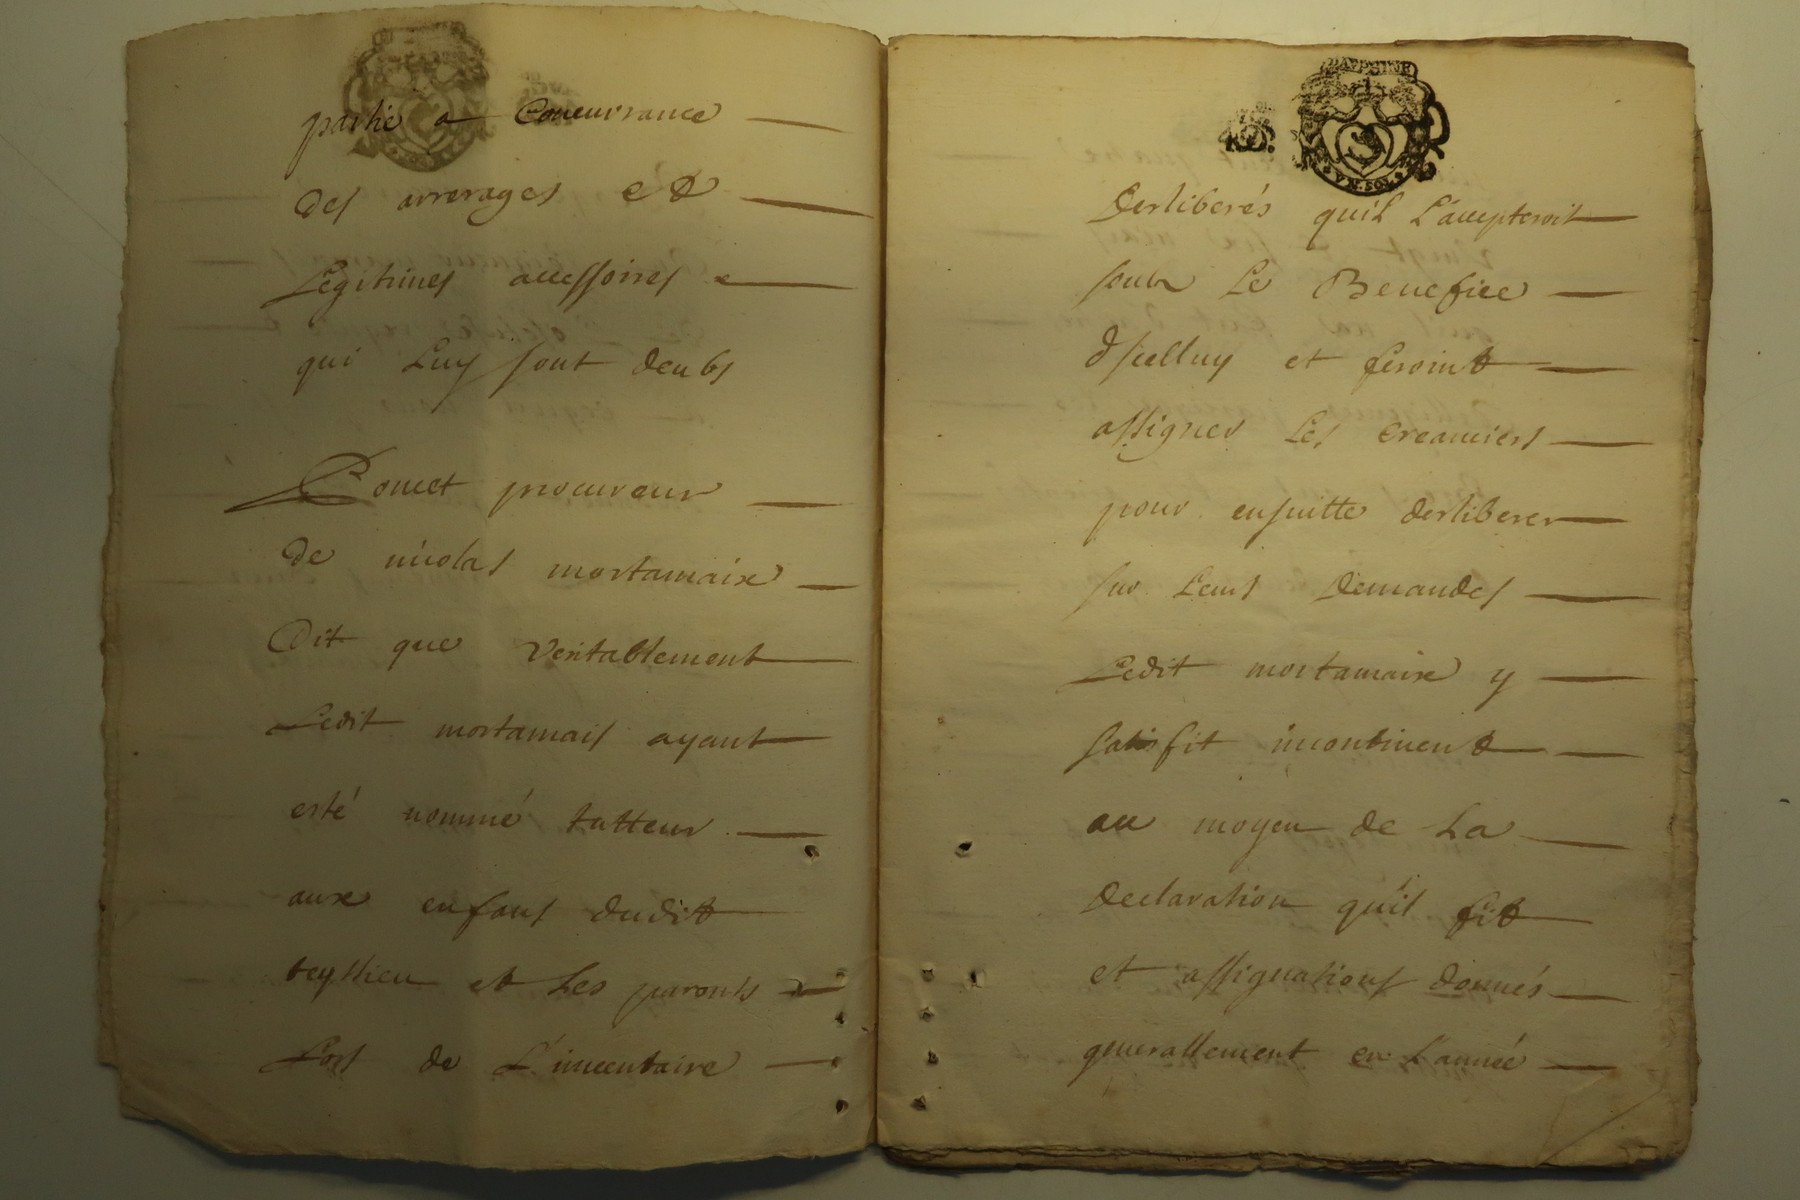 partie a Concurrance
des arrerages et
Legitimes accessoires
qui Luy sont deubs
Poncet procureur
de nicolas mortamaix
Dit que veritablement
Ledit mortamais ayant
esté nommé tutteur
aux enfans dudit
teyssieu et Les parents
Lors de L'inventaire
DAVPHINE
VN.SOL
Derliberés quil L'accepteroit
soubz Le Benefice
d'icelluy et feroint
assigner Les creanciers
pour ensuitte derliberer
sur Leurs Demandes
Ledit mortamaix y
satisfit incontinent
au moyen de La
declaration qu'il fit
et assignations donnés
generallement en L'année